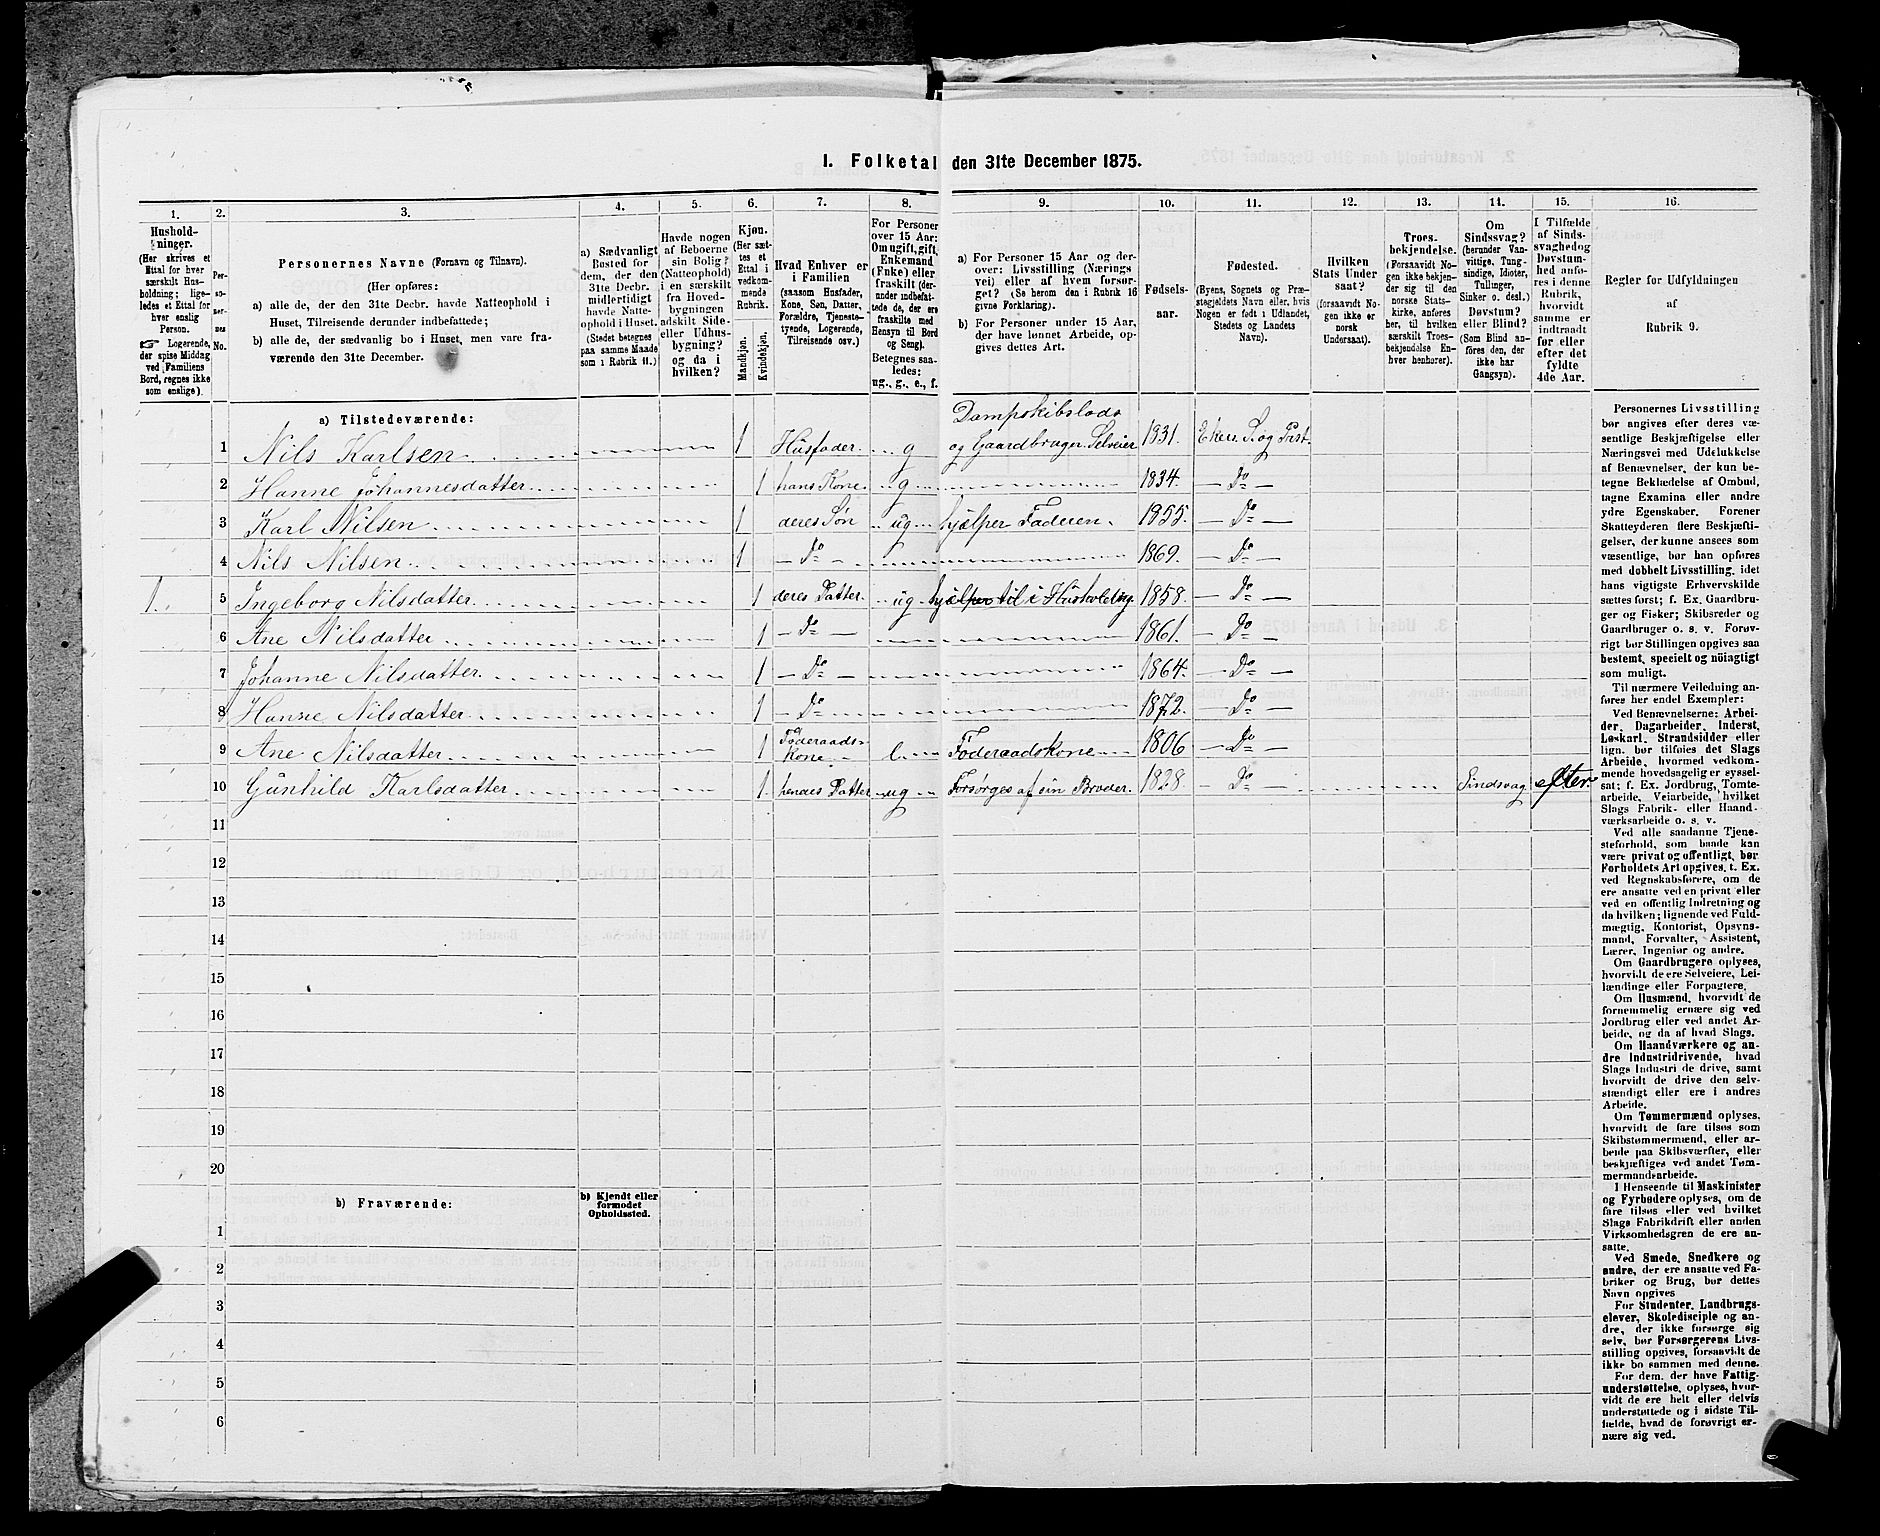 I. Folketal den 31te December 1875.
1. 2. 3. 4. 5. 6. 7. 8. 9. 10. 11. 12. 13. 14. 15. 16.
Hushold-
ninger.
(Her skrives et
Ettal for hver
særskilt Hus-
holdning; lige-
ledes et Ettal for
hver enslig
Person.
☞ Logerende,
der spise Middag
ved Familiens
Bord, regnes ikke
som enslige).
Per-
so-
ner-
nes
No.
Personernes Navne (Fornavn og Tilnavn).
(Her opføres:
a) alle de, der den 31te Decbr. havde Natteophold i
Huset, Tilreisende derunder indbefattede;
b) alle de, der sædvanlig bo i Huset, men vare fra-
værende den 31te December.
a) Sædvanligt
Bosted for
dem, der den
31te Decbr.
midlertidigt
havde Natte-
ophold i Huset.
(Stedet betegnes
paa samme Maade
som i Rubrik 11.)
Havde nogen
af Beboerne
sin Bolig
(Natteophold)
i en særskilt
fra Hoved-
bygningen
adskilt Side-
eller Udhus-
bygning?
og da i
hvilken?
Kjøn.
(Her sæt-
tes et
Ettal i
vedkom-
mende
Rubrik.
Mandkjøn.
Kvindekjøn.
Hvad Enhver er
i Familien
(saasom Husfader,
Kone, Søn, Datter,
Forældre, Tjeneste-
tyende, Logerende,
Tilreisende osv.)
For Personer
over 15 Aar:
Om ugift, gift,
Enkemand
(Enke) eller
fraskilt (der-
under indbefat-
tede de, der ere
fraskilte med
Hensyn til Bord
og Seng).
Betegnes saa-
ledes:
ug., g., e., f.
a) For Personer 15 Aar og der-
over: Livsstilling (Nærings
vei) eller af hvem forsør-
get? (Se herom den i Rubrik 16
givne Forklaring).
b) For Personer under 15 Aar,
der have lønnet Arbeide, op-
gives dettes Art.
Fødsels-
aar.
Fødested.
(Byens, Sognets og Præ-
stegjeldets Navn eller, hvis
Nogen er født i Udlandet,
Stedets og Landets
Navn).
Hvilken
Stats Under
saat?
(forsaavidt No-
gen ikke er
norsk
Undersaat).
Troes-
bekjendelse.
(Forsaavidt No-
gen ikke bekjen-
der sig til den
norske Stats-
kirke, anføres
her, til hvilken
særskilt Troes-
bekjendelse En-
hver henhører).
Om
Sindssvag?
(herunder Van-
vittige, Tung-
sindige, Idioter,
Tullinger,
Sinker o. desl.)
Døvstum?
eller Blind?
(Som Blind an-
føres den, der
ikke har
Gangsyn).
I Tilfælde
af Sinds-
svaghed og
Døvstum-
hed anfø-
res i denne
Rubrik,
hvorvidt
samme er
indtraadt
før eller
efter det
fyldte
4de Aar.
Regler for Udfyldningen
af
Rubrik 9.
a) Tilstedeværende:
1 Nils Karlsen 1 Husfader g Dampskibslods
og Gaardbruger Selveier 1831. Eken S. og Prst.
2 Hanne Johannesdatter 1 hans Kone g 1834 Do
3 Karl Nilsen 1 deres Søn ug hjælper Faderen. 1855. Do
4 Nils Nilsen 1 Do 1869. Do
1. 5 Ingeborg Nilsdatter 1 deres Datter ug hjælper til i Husholdng. 1858. Do
6 Ane Nilsdatter 1 Do 1861. Do
7 Johanne Nilsdatter 1 Do 1864. Do
8 Hanne Nilsdatter 1 Do 1872. Do
9 Ane Nilsdatter 1 Føderaads-
Kone e. Føderaadskone 1806 Do
10 Gunhild Karlsdatter 1. hendes Datter ug Forsørges af sin Broder. 1828. Do Sindsvag efter.
11
12
13
14
15
16
17
18
19
20
b) Fraværende:
b) Kjendt eller
formodet
Opholdssted.
1
2
3
4
5
6
Personernes Livsstilling
bør angives efter deres væ-
sentlige Beskjæftigelse eller
Næringsvei med Udelukkelse
af Benævnelser, der kun be-
tegne Beklædelse af Ombud,
tagne Examina eller andre
ydre Egenskaber. Forener
Skatteyderen flere Beskjæfti-
gelser, der kunne ansees som
væsentlige, bør han opføres
med dobbelt Livsstilling, idet
hans vigtigste Erhvervskilde
sættes først; f. Ex. Gaardbru-
ger og Fisker; Skibsreder og
Gaardbruger o. s. v. Forøv-
rigt bør Stillingen opgives saa
bestemt, specielt og nøiagtigt
som muligt.
Til nærmere Veiledning an-
føres her endel Exempler:
Ved Benævnelserne: Arbei-
der, Dagarbeider, Inderst,
Løskarl, Strandsidder eller
lign. bør tilføies det Slags
Arbeide, hvormed vedkom-
mende hovedsagelig er syssel-
sat; f. Ex. Jordbrug, Tomte-
arbeide, Veiarbeide, hvilket
Slags Fabrik- eller Haand-
værksarbeide o. s. v.
Ved alle saadanne Tjene-
steforhold, som baade kan
være privat og offentligt, bør
Forholdets Art opgives, t. Ex.
ved Regnskabsførere, om de
ere ansatte ved en privat eller
ved en offentlig Indretning og
da hvilken; lignende ved Fuld-
mægtig, Kontorist, Opsyns-
mand, Forvalter, Assistent,
Lærer, Ingeniør og andre.
Om Gaardbrugere oplyses,
hvorvidt de ere Selveiere, Lei-
lændinge eller Forpagtere.
Om Husmænd, hvorvidt de
fornemmelig ernære sig ved
Jordbrug eller ved andet Ar-
beide, og da af hvad Slags.
Om Haandværkere og an-
dre Industridrivende, hvad
Slags Industri de drive, samt
hvorvidt de drive den selv-
stændigt eller ere i andres
Arbeide.
Om Tømmermænd oplyses,
hvorvidt de fare tilsøs som
Skibstømmermænd, eller ar-
beide paa Skibsværfter, eller
beskjæftiges ved andet Tøm-
mermandsarbeide.
I Henseende til Maskinister
og Fyrbødere oplyses, om de
fare tilsøs eller ved hvilket
Slags Fabrikdrift eller anden
Virksomhedsgren de ere an-
satte.
Ved Smede, Snedkere og
andre, der ere ansatte ved Fa-
briker og Brug, bør dettes
Navn opgives
For Studenter, Landbrugs-
elever, Skoledisciple og an-
dre, der ikke forsørge sig
selv, bør Forsørgerens Livs-
stilling opgives, forsaavidt de
ikke bo sammen med denne.
For dem, der have Fattig-
understøttelse, oplyses, hvor-
vidt de ere helt eller delvis
understøttede og i sidste Til-
fælde, hvad de forøvrigt er-
nære sig ved.